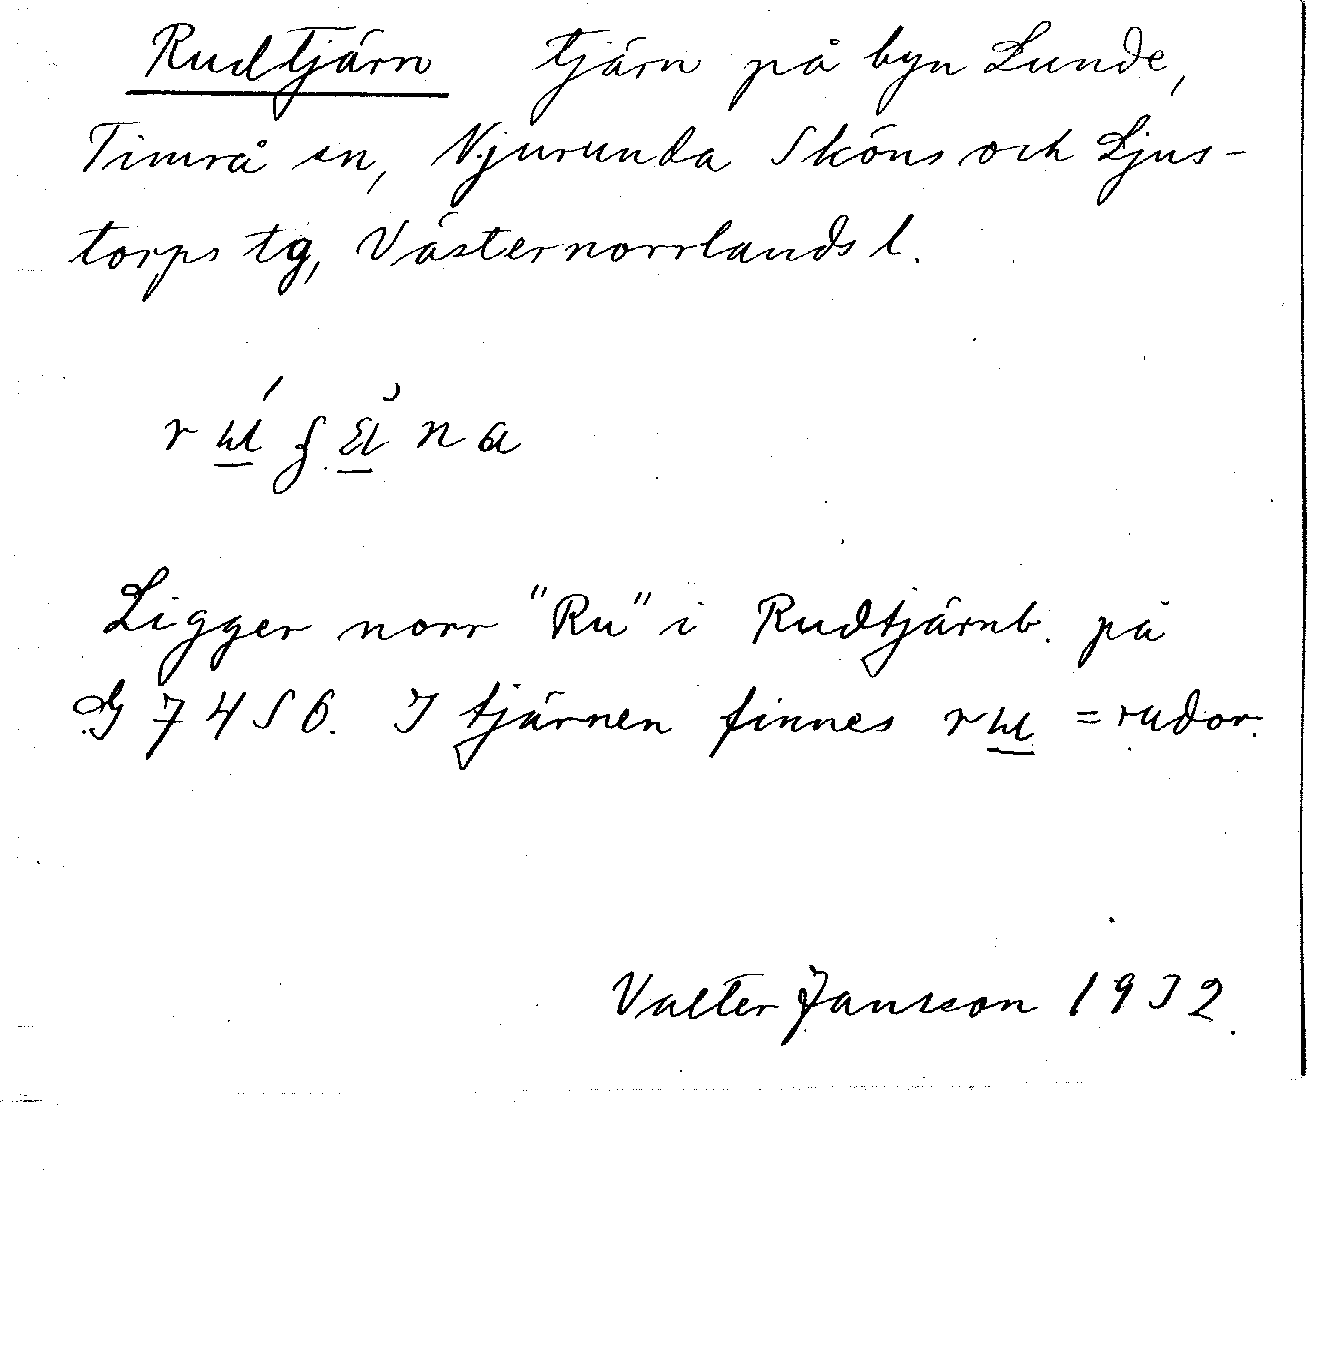 Rudtjärn tjärn på byn Lunde,
Timrå sn, Njurunda Sköns och Ljus-
torps tg, Västernorrlands l.
Ligger norr "Ru" i Rudtjärnb. på
G 7456. I tjärnen finnes = rudor.
Valter Jansson 1932.